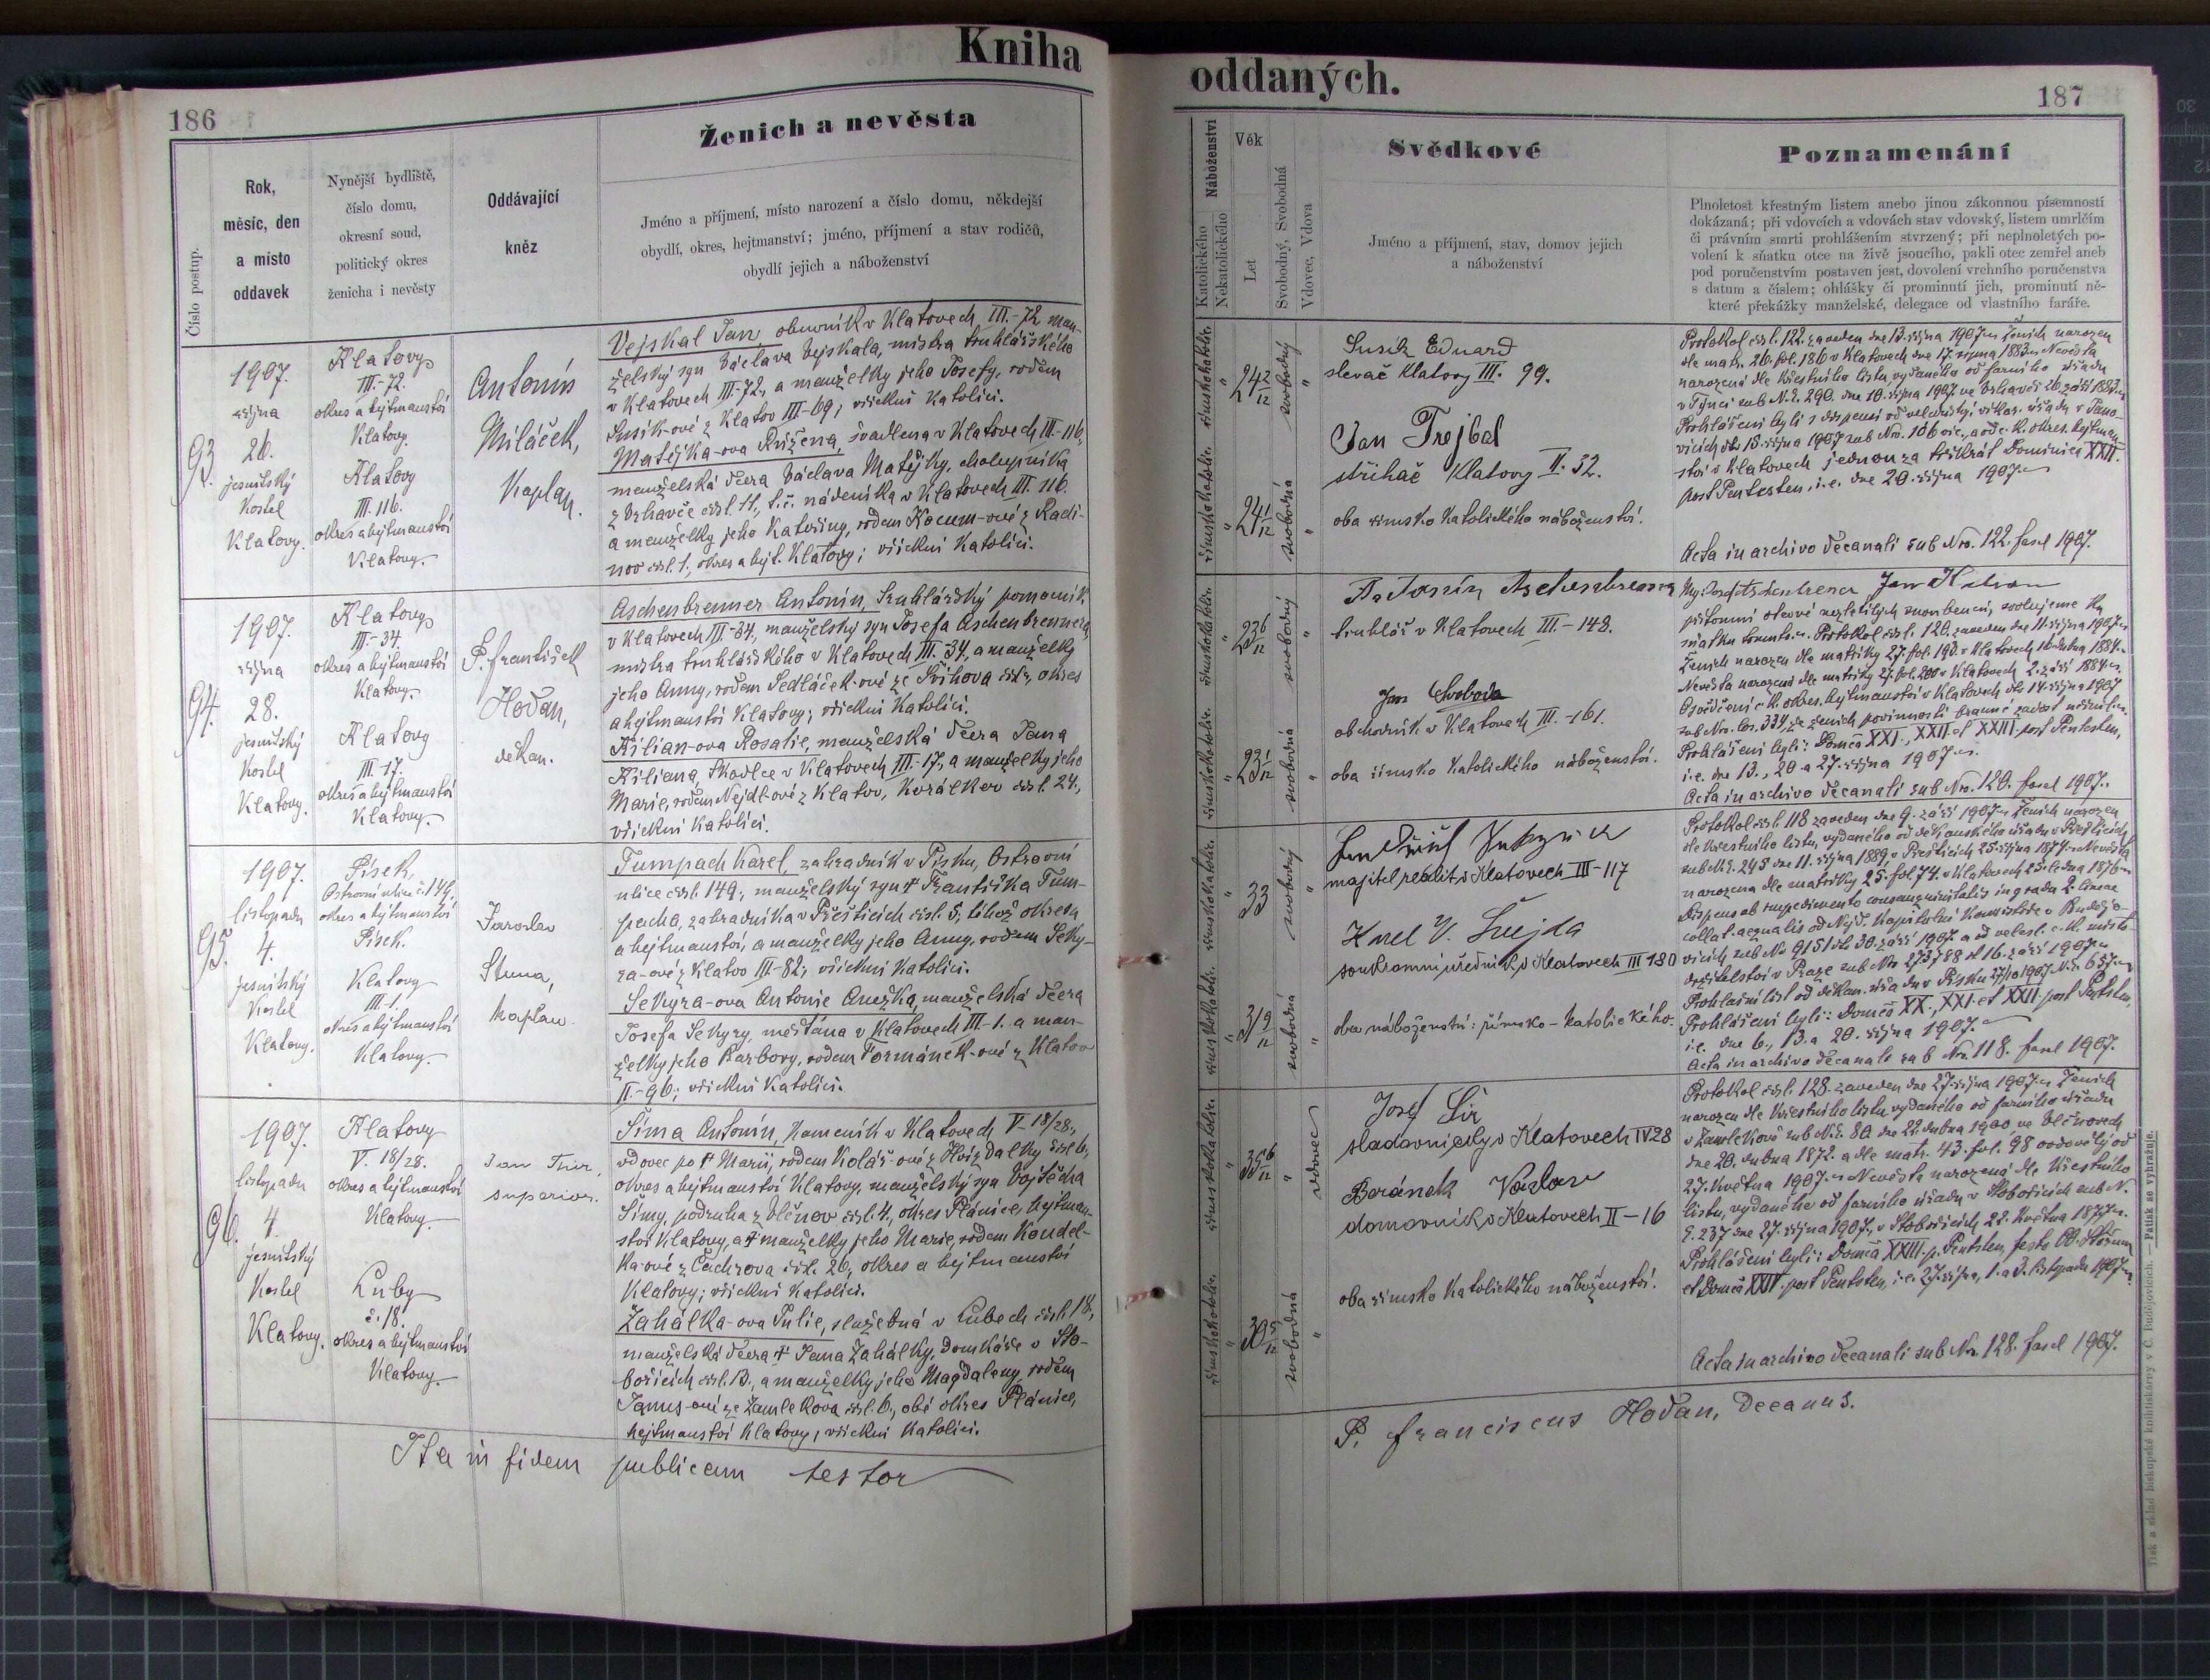 Kniha
186
Číslo postup.
Rok,
měsíc, den
a místo
oddavek
Nynější bydliště,
číslo domu,
okresní soud,
politický okres
ženicha i nevěsty
Oddávající
kněz
Ženich a nevěsta
Jméno a příjmení, místo narození a číslo domu, někdejší
obydlí, okres, hejtmanství; jméno, příjmení a stav rodičů,
obydlí jejich a náboženství
93.
1907.
října
26.
jesuitský
Kostel
Klatovy.
Klatovy
III.-72.
okres a hejtmanství
Klatovy.
Klatovy
III. 116.
okres a hejtmanství
Klatovy.
Antonín
Miláček,
Kaplan.
Vejskal Jan, obuvník v Klatovech III.-72 man-
želský syn Václava Vejskala, mistra truhlářského
v Klatovech III-72, a manželky jeho Josefy, rodem
Susík-ové z Klatov III-69; všickni Katolíci.
Matějka-ova Růžena, švadlena v Klatovech III-116,
manželská dcera Václava Matějky, chalupníka
z Vrhavče čísl. 11, t.č. nádeníka v Klatovech III. 116.
a manželky jeho Kateřiny, rodem Kocum-ové z Radi-
nov čísl. 1., okres a hejt. Klatovy; všickni Katolíci.
94.
1907.
října
28.
jesuitský
Kostel
Klatovy.
Klatovy
III-34.
okres a hejtmanství
Klatovy.
Klatovy
III.-17.
okres a hejtmanství
Klatovy.
P. František
Hodan,
děkan.
Aschenbrenner Antonín, truhlářský pomocník
v Klatovech III.-34, manželský syn Josefa Aschenbrennera,
mistra truhlářského v Klatovech III. 34, a manželky
jeho Anny, rodem Sedláček-ové ze Švihova, okres
a hejtmanství Klatovy; všickni Katolíci.
Kilian-ova Rosalie, manželská dcera Jana
Kiliana, tkadlce v Klatovech III-17, a manželky jeho
Marie, rodem Nejdl-ové z Klatov, Korálkov čísl. 24.,
všickni Katolíci.
95.
1907.
listopadu
4.
jesuitský
Kostel
Klatovy.
Písek,
Ostrovní ulice č. 149,
okres a hejtmanství
Písek.
Klatovy
III-1.
okres a hejtmanství
Klatovy.
Jaroslav
kaplan.
Tumpach Karel, zahradník v Písku, Ostrovní
ulice čísl. 149., manželský syn † Františka Tum-
pacha, zahradníka v Přešticích čísl. 5, téhož okresu
a hejtmanství, a manželky jeho Anny, rodem Seky-
ra-ové z Klatov III-82; všickni Katolíci.
Sekyra-ova Antonie Anežka, manželská dcera
Josefa Sekyry, měšťana v Klatovech III-1. a man-
želky jeho Barbory, rodem Formánek-ové z Klatov
II-96; všickni Katolíci.
96.
1907.
listopadu
4.
jesuitský
Kostel
Klatovy.
Klatovy
V. 18/28.
okres a hejtmanství
Klatovy.
Luby
č. 18.
okres a hejtmanství
Klatovy.
Jan
superior.
Šíma Antonín, kameník v Klatovech V-18/28,
vdovec po † Marii, rodem Kolář-ové z Hvizdalky čísl. 6,
okres a hejtmanství Klatovy, manželský syn Vojtěcha
Šímy, podruha z Věčnov čísl. 4., okres Plánice, hejtman-
ství Klatovy, a † manželky jeho Marie, rodem Koudel-
ka-ové z Čachrova čísl. 26, okres a hejtmanství
Klatovy; všickni Katolíci.
Zahálka-ova Julie, služebná v Lubech čísl. 18,
manželská dcera † Jana Zahálky, domkáře v Sto-
bořicích čísl. 13., a manželky jeho Magdaleny, rodem
Janus-ové ze Zamlekova čísl. 6, obě okres Plánice,
hejtmanství Klatovy, všickni Katolíci.
Ita in fidem publicam testor
oddaných.
187
Náboženství
Katolického
Nekatolického
Věk
Let
Svobodný, Svobodná
Vdovec, Vdova
Svědkové
Jméno a příjmení, stav, domov jejich
a náboženství
Poznamenání
Plnoletost křestným listem anebo jinou zákonnou písemností
dokázaná; při vdovcích a vdovách stav vdovský, listem umrlčím
či právním smrti prohlášením stvrzený; při neplnoletých po-
volení k sňatku otce na živě jsoucího, pakli otec zemřel aneb
pod poručenstvím postaven jest, dovolení vrchního poručenstva
s datum a číslem; ohlášky či prominutí jich, prominutí ně-
které překážky manželské, delegace od vlastního faráře.
římskokatolic.
" 24 2/12 svobodný "
římskokatolic.
" 24 1/12 svobodná "
Susík Eduard
slevač Klatovy III. 99.
Jan Trejbal
střihač Klatovy II. 32.
oba římsko Katolického náboženství.
Protokol čísl. 122. zaveden dne 13. října 1907. Ženich narozen
dle matr. 26. fol. 186 v Klatovech dne 17. srpna 1883. Nevěsta
narozená dle křestního listu, vydaného od farního úřadu
v Týnci sub N.E. 290. dne 10. října 1907. ve Vrhavči 26. září 1883.
Prohlášení byli s dispensí od velebného vikar. úřadu v Jano-
vicích dto 18. října 1907 sub Nro. 106 vic., a od c. k. okres. hejtman-
ství v Klatovech jednou za třikrát Dominica XXII.
post Pentecsten, i.e. dne 20. října 1907.
Acta in archivo decanali sub Nro. 122. fasl 1907.
římskokatolic.
" 23 6/12 svobodný "
římskokatolic.
" 23 1/12 svobodná "
Antonín Aschenbrenner
truhlář v Klatovech III-148.
Jan Svoboda
obchodník v Klatovech III.-161.
oba římsko Katolického náboženství.
přítomní otcové nezletilých snoubenců, svolujeme k
sňatku tomuto. Protokol čísl. 120. zaveden dne 11. října 1907.
Ženich narozen dle matriky 27. fol. 190. v Klatovech 16. dubna 1884.
Nevěsta narozena dle matriky 27. fol. 200 v Klatovech 2. září 1884.
Osvědčení c. k. okres. hejtmanství v Klatovech dto 14. října 1907
Prohlášení byli: Domca XXI., XXII. et XXIII. post Pentecsten,
i.e. dne 13., 20. a 27. října 1907.
Acta in archivo decanali sub Nro. 120. fasl 1907.
římskokatolic.
" 33 svobodný "
římskokatolic.
" 31 9/12 svobodná "
majitel realit v Klatovech III-117
Karel V. Švejda
soukromní úředník v Klatovech III 180
oba náboženství: římsko-katolického.
Protokol čísl. 118 zaveden dne 9. září 1907. Ženich narozen
dle křestního listu, vydaného od děkanského úřadu v Přešticích
sub N.E. 245 dne 11. října 1889, v Přešticích 25. října 1874. Nevěsta
narozena dle matriky 25. fol. 74. v Klatovech 25. ledna 1876.
Dispens ab impedimento consanguinitatis in gradu 2. lineae
collat. aequalis od Nejd. Kapitolní Konsistoře v Budějo-
vicích sub No 9151 dto 30. září 1907. a od veleslav. c. k. místo-
držitelství v Praze sub Nro 273788 dto 16. září 1907.
Prohlášní list od děkan. úřadu v Písku 27/10 1907
Prohlášení byli: Domca XX., XXI. et XXII. post Pentcsten,
i.e. dne 6., 13. a 20. října 1907.
Acta in archivo decanali sub Nro. 118. fasl 1907.
římskokatolic.
" 35 6/12 " vdovec
římskokatolic.
" 30 5/12 svobodná "
Josef Šír
sladovnický v Klatovech IV 28
Beránek Václav
domovník v Klatovech II-16
oba římsko Katolického náboženství.
Protokol čísl. 128. zaveden dne 27. října 1907. Ženich
narozen dle křestního listu vydaného od farního úřadu
v Zamlekově sub N.E. 80. dne 22. dubna 1900, ve Věčnovech
dne 20. dubna 1872. a dle matr. 43. fol. 98 ovdovělý od
27. května 1907. Nevěsta narozená dle křestního
listu, vydaného od farního úřadu v Stobořicích sub N.
E. 237 dne 27. října 1907., v Stobořicích, 22. května 1877.
Prohlášení byli: Domca XXIII. p. Pentcsten, festo OO. Storum
et Domca XXIV. post Pentcsten, i.e. 27. října, 1. a 3. listopadu 1907.
Acta in archivo decanali sub Nro. 128. fasl 1907.
P. Franciscus Hodan, Decanus.
Tisk a sklad biskupské knihtiskárny v Č. Budějovicích. — Patisk se vyhražuje.